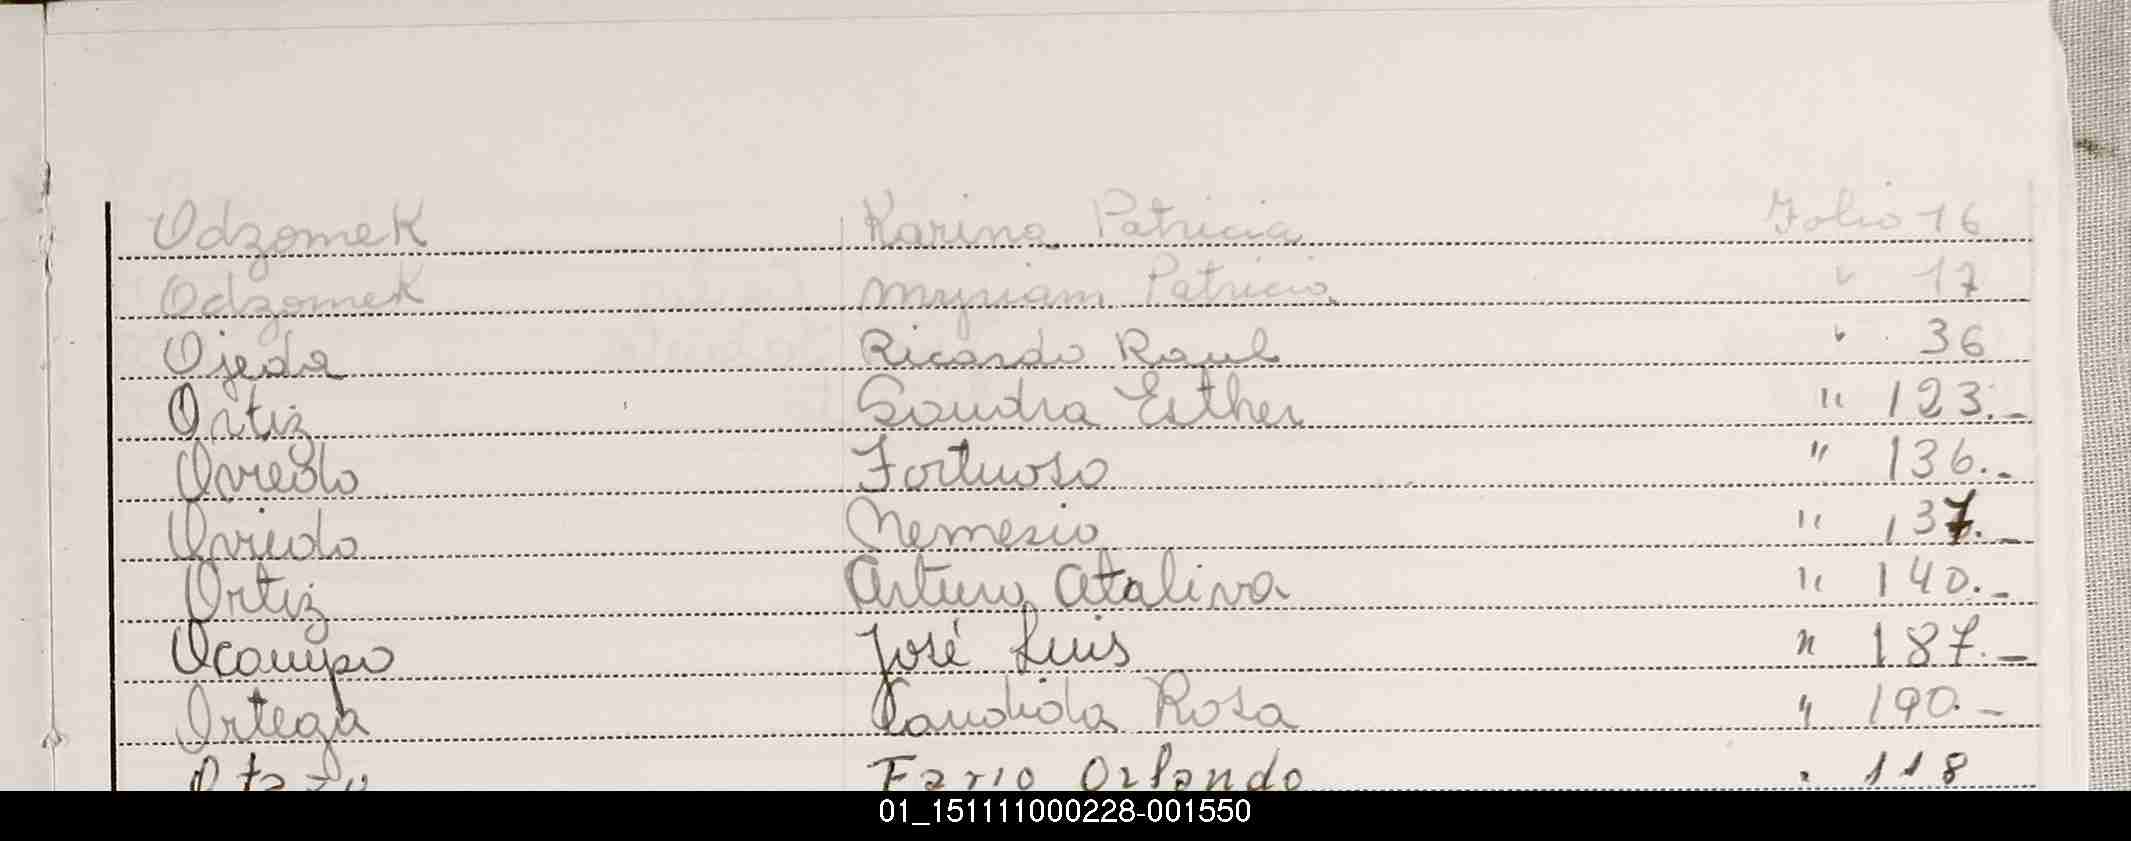 Odzomek Karina Patricia Folio 16
Odzomek Myriam Patricia " 17
Ojeda Ricardo Raul " 36
Ortiz Sandra Esther " 123.-
Oviedo Fortuoso " 136.-
Oviedo Nemesio " 137.-
Ortiz Arturo Ataliva " 140.-
Ocampo José Luis " 187.-
Ortega Candida Rosa " 190.-
Orlando " 118
01_151111000228-001550